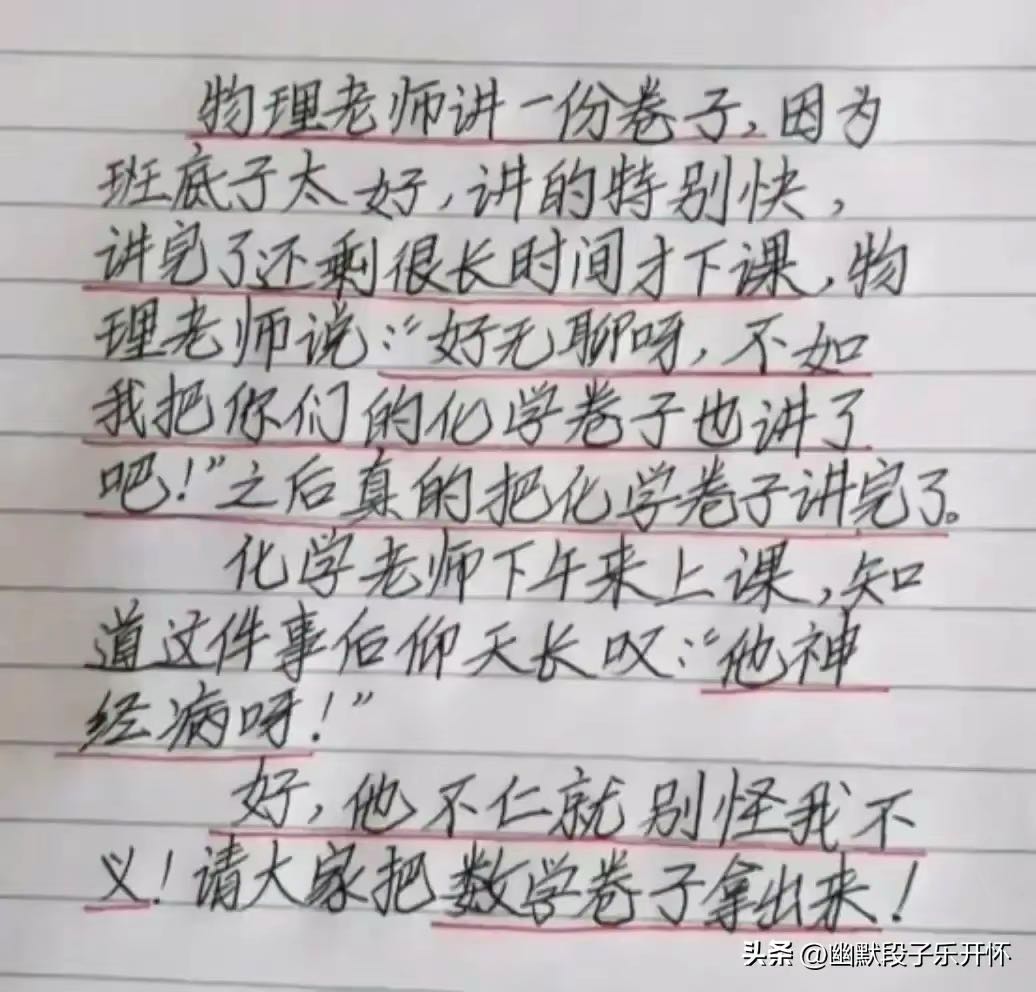 物理老师讲一份卷子,因为
班底子太好,讲的特别快,
讲完了还剩很长时间才下课,物
理老师说:“好无聊呀,不如
我把你们的化学卷子也讲了
吧!”之后真的把化学卷子讲完了。
化学老师下午来上课,知
道这件事后仰天长叹:“他神
经病呀!”
好,他不仁就别怪我不
义!请大家把数学卷子拿出来!
头条 @幽默段子乐开怀